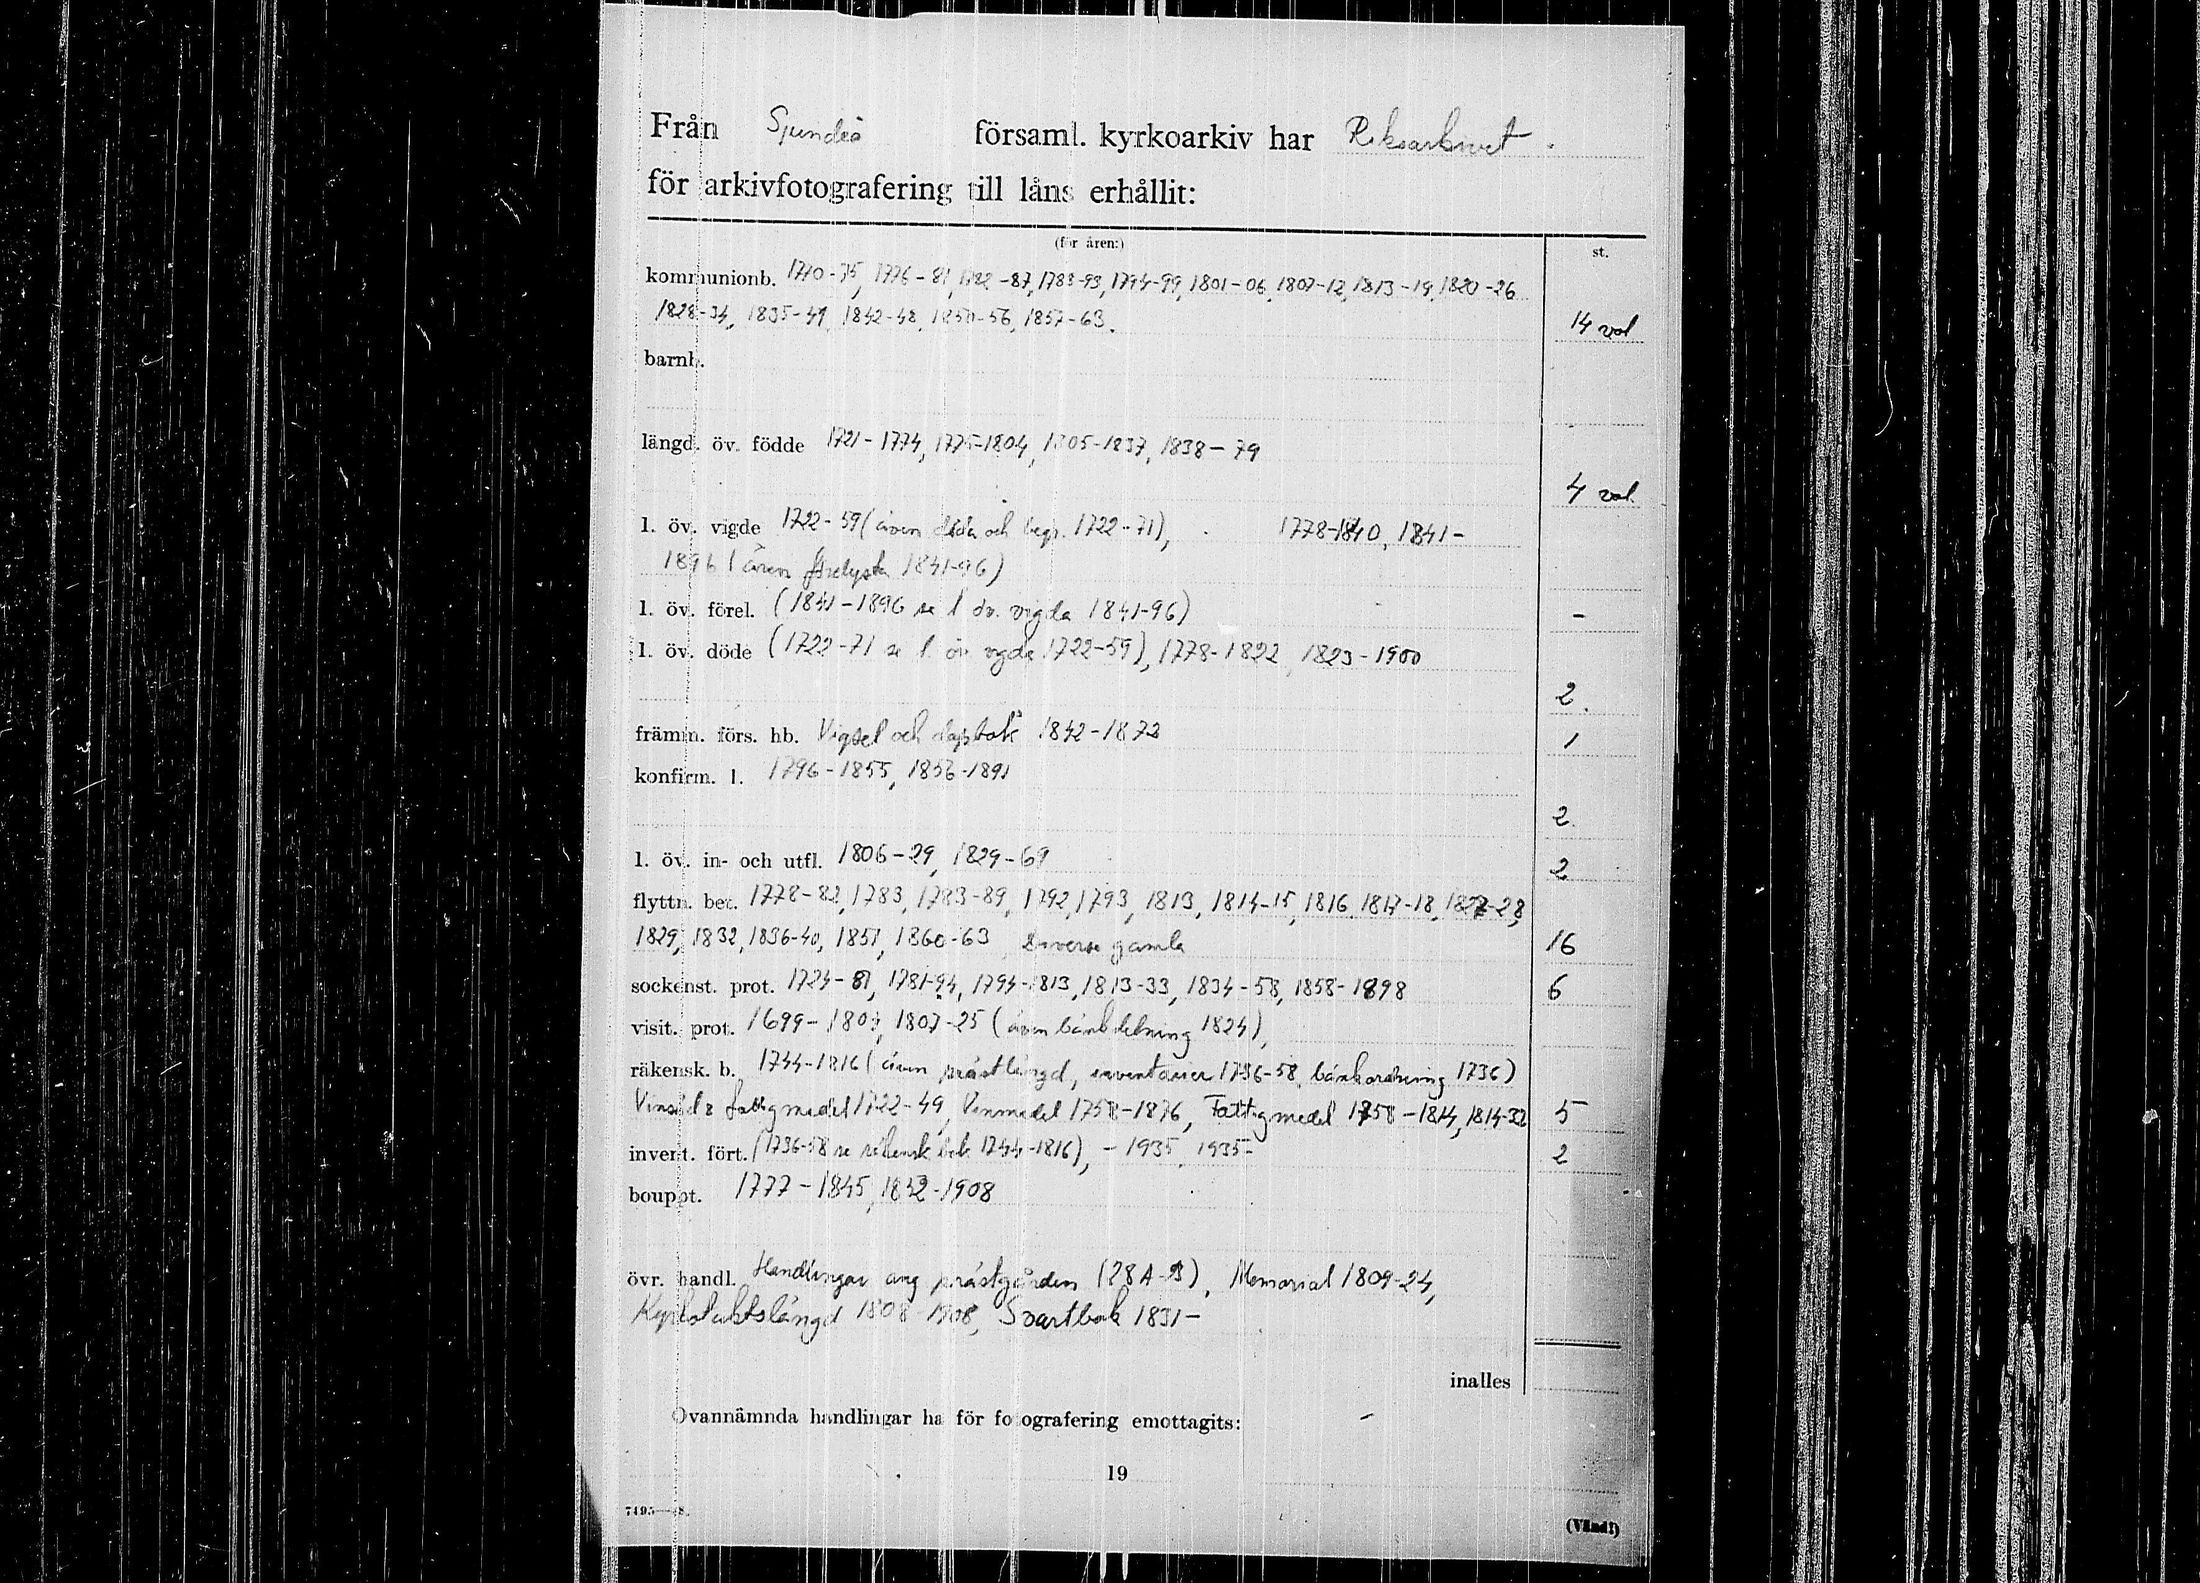 Från Sjundeå församl. kyrkoarkiv har Riksarkivet
för arkivfotografering till låns erhållit:
(för åren:) st.
kommunionb. 1770-75, 1776-81, 1782-87, 1788-93, 1794-99, 1801-06, 1807-12, 1813-19, 1820-26
1828-34, 1835-41, 1842-48, 1850-56, 1857-63. 14 vol
barnb.
längd. öv. födde 1721-1774, 1775-1804, 1805-1837, 1838-79
4 vol.
l. öv. vigde 1722-59 (även döda och begr. 1722-71), 1778-1840, 1841-
1896 (även förelysta 1841-96)
l. öv. förel. (1841-1896 se l. öv. vigda 1841-96) -
l. öv. döde (1722-71 se l. öv. vigda 1722-59), 1778-1822, 1823-1900
2.
främm. förs. hb. Vigsel och dopbok 1842-1873 1
konfirm. l. 1796-1855, 1856-1891
2.
l. öv. in- och utfl. 1806-29, 1829-69 2
flyttn. bet. 1778-82, 1783, 1783-89, 1792, 1793, 1813, 1814-15, 1816, 1817-18, 1827-28,
1829, 1832, 1836-40, 1851, 1860-63 Diverse gamla 16
sockenst. prot. 1724-81, 1781-94, 1794-1813, 1813-33, 1834-58, 1858-1898 6
visit. prot. 1699-1807, 1807-25 (även bänkdelning 1824),
räkensk. b. 1744-1816 (även prästlängd, inventarier 1736-58, bänkordning 1736)
fattigmedel 1722-49, Vinmedel 1758-1876, Fattigmedel 1758-1814, 1814-32 5
invent. fört. (1736-58 se räkensk. bok 1744-1816), -1935, 1935- 2
bouppt. 1777-1845, 1842-1908
övr. handl. Handlingar ang prästgården (28 A-B), Memorial 1809-24,
Kyrkotuktslängd 1808-1908, Svartbok 1831-
inalles
Ovannämnda handlingar ha för fotografering emottagits:
19
7495—48.
(Vänd!)